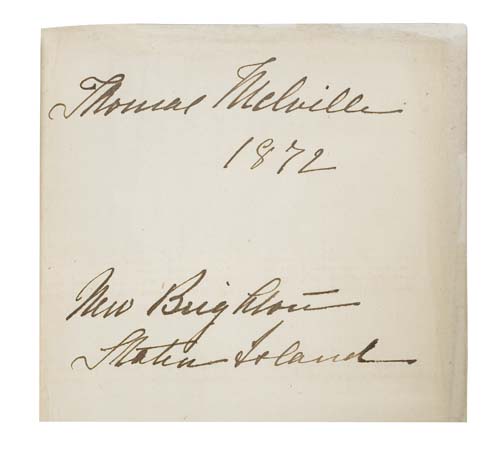 Thomas Melville
1872
New Brighton
Staten Island